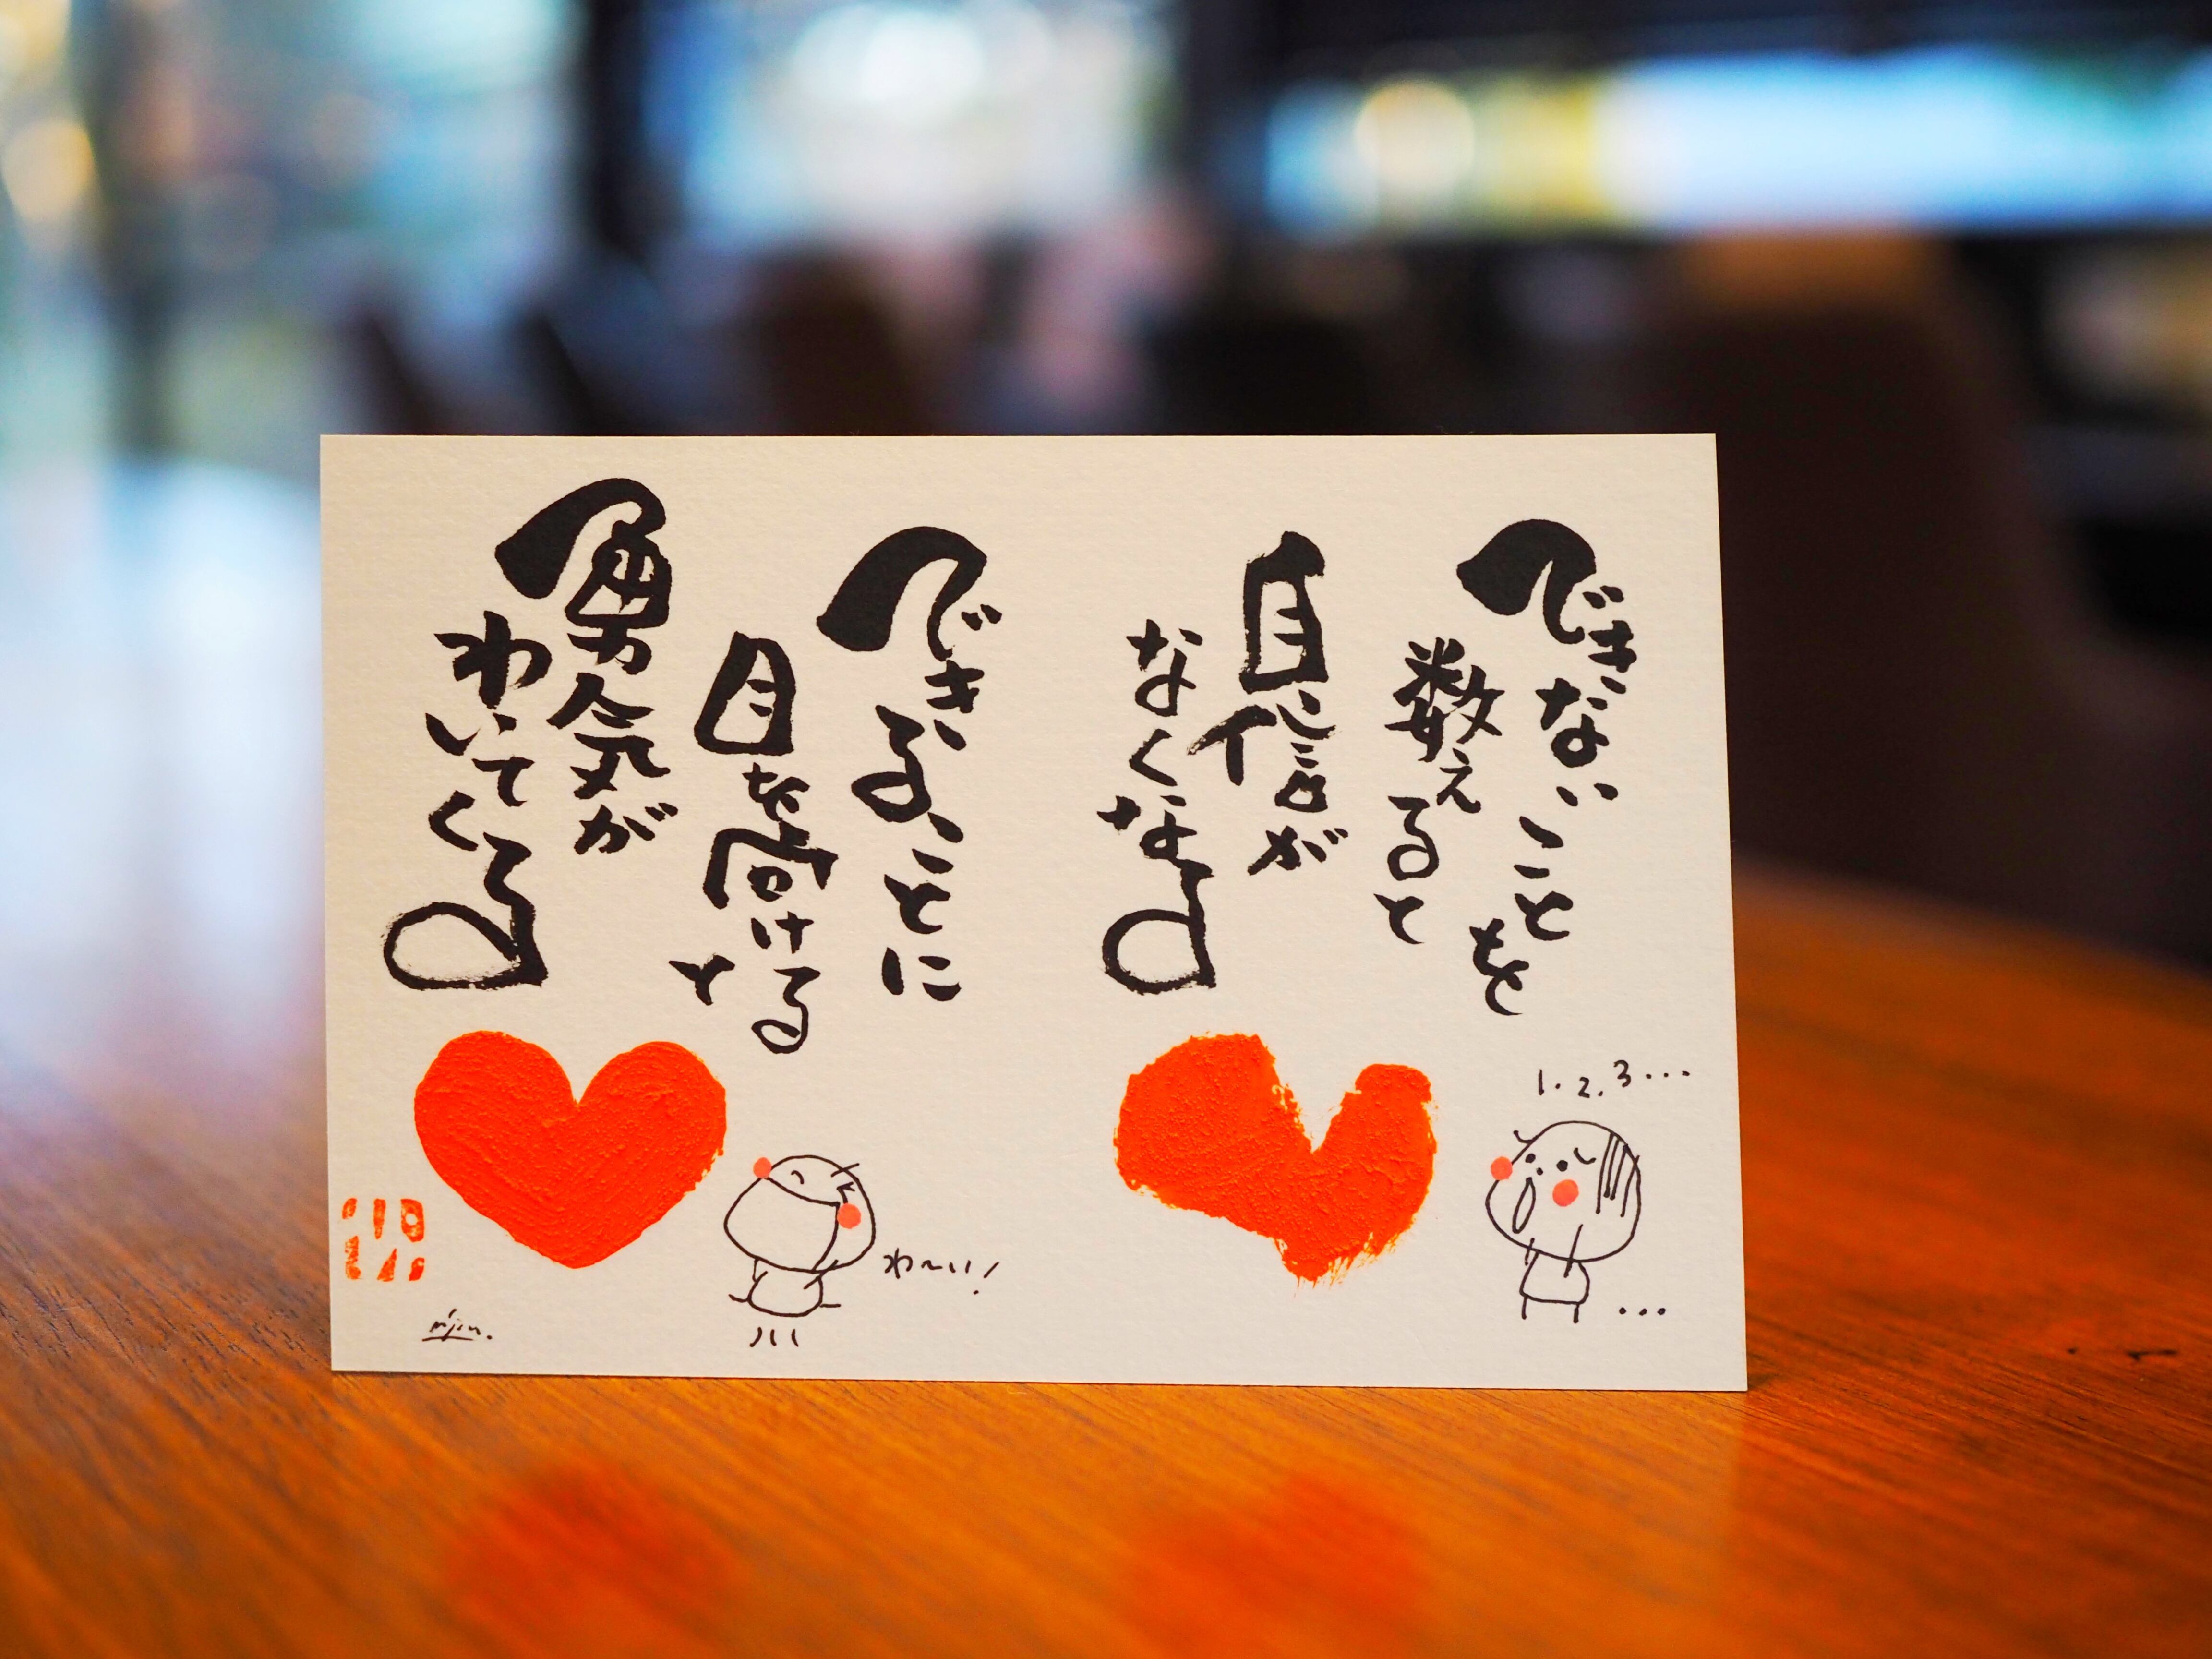 できないことを
数えると
自信が
なくなる
1.2.3...
...
できることに
目を向ける
と
勇気が
わいてくる
わ〜い!